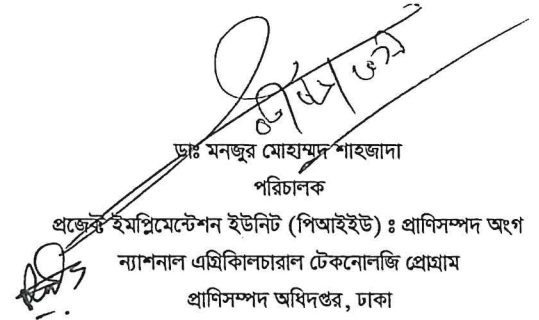 ডাঃ মনজুর মোহাম্মদ শাহজাদা
পরিচালক
প্রজেক্ট ইমপ্লিমেন্টেশন ইউনিট (পিআইইউ) ঃ প্রাণিসম্পদ অংগ
ন্যাশনাল এগ্রিকালচারাল টেকনোলজি প্রোগ্রাম
প্রাণিসম্পদ অধিদপ্তর, ঢাকা